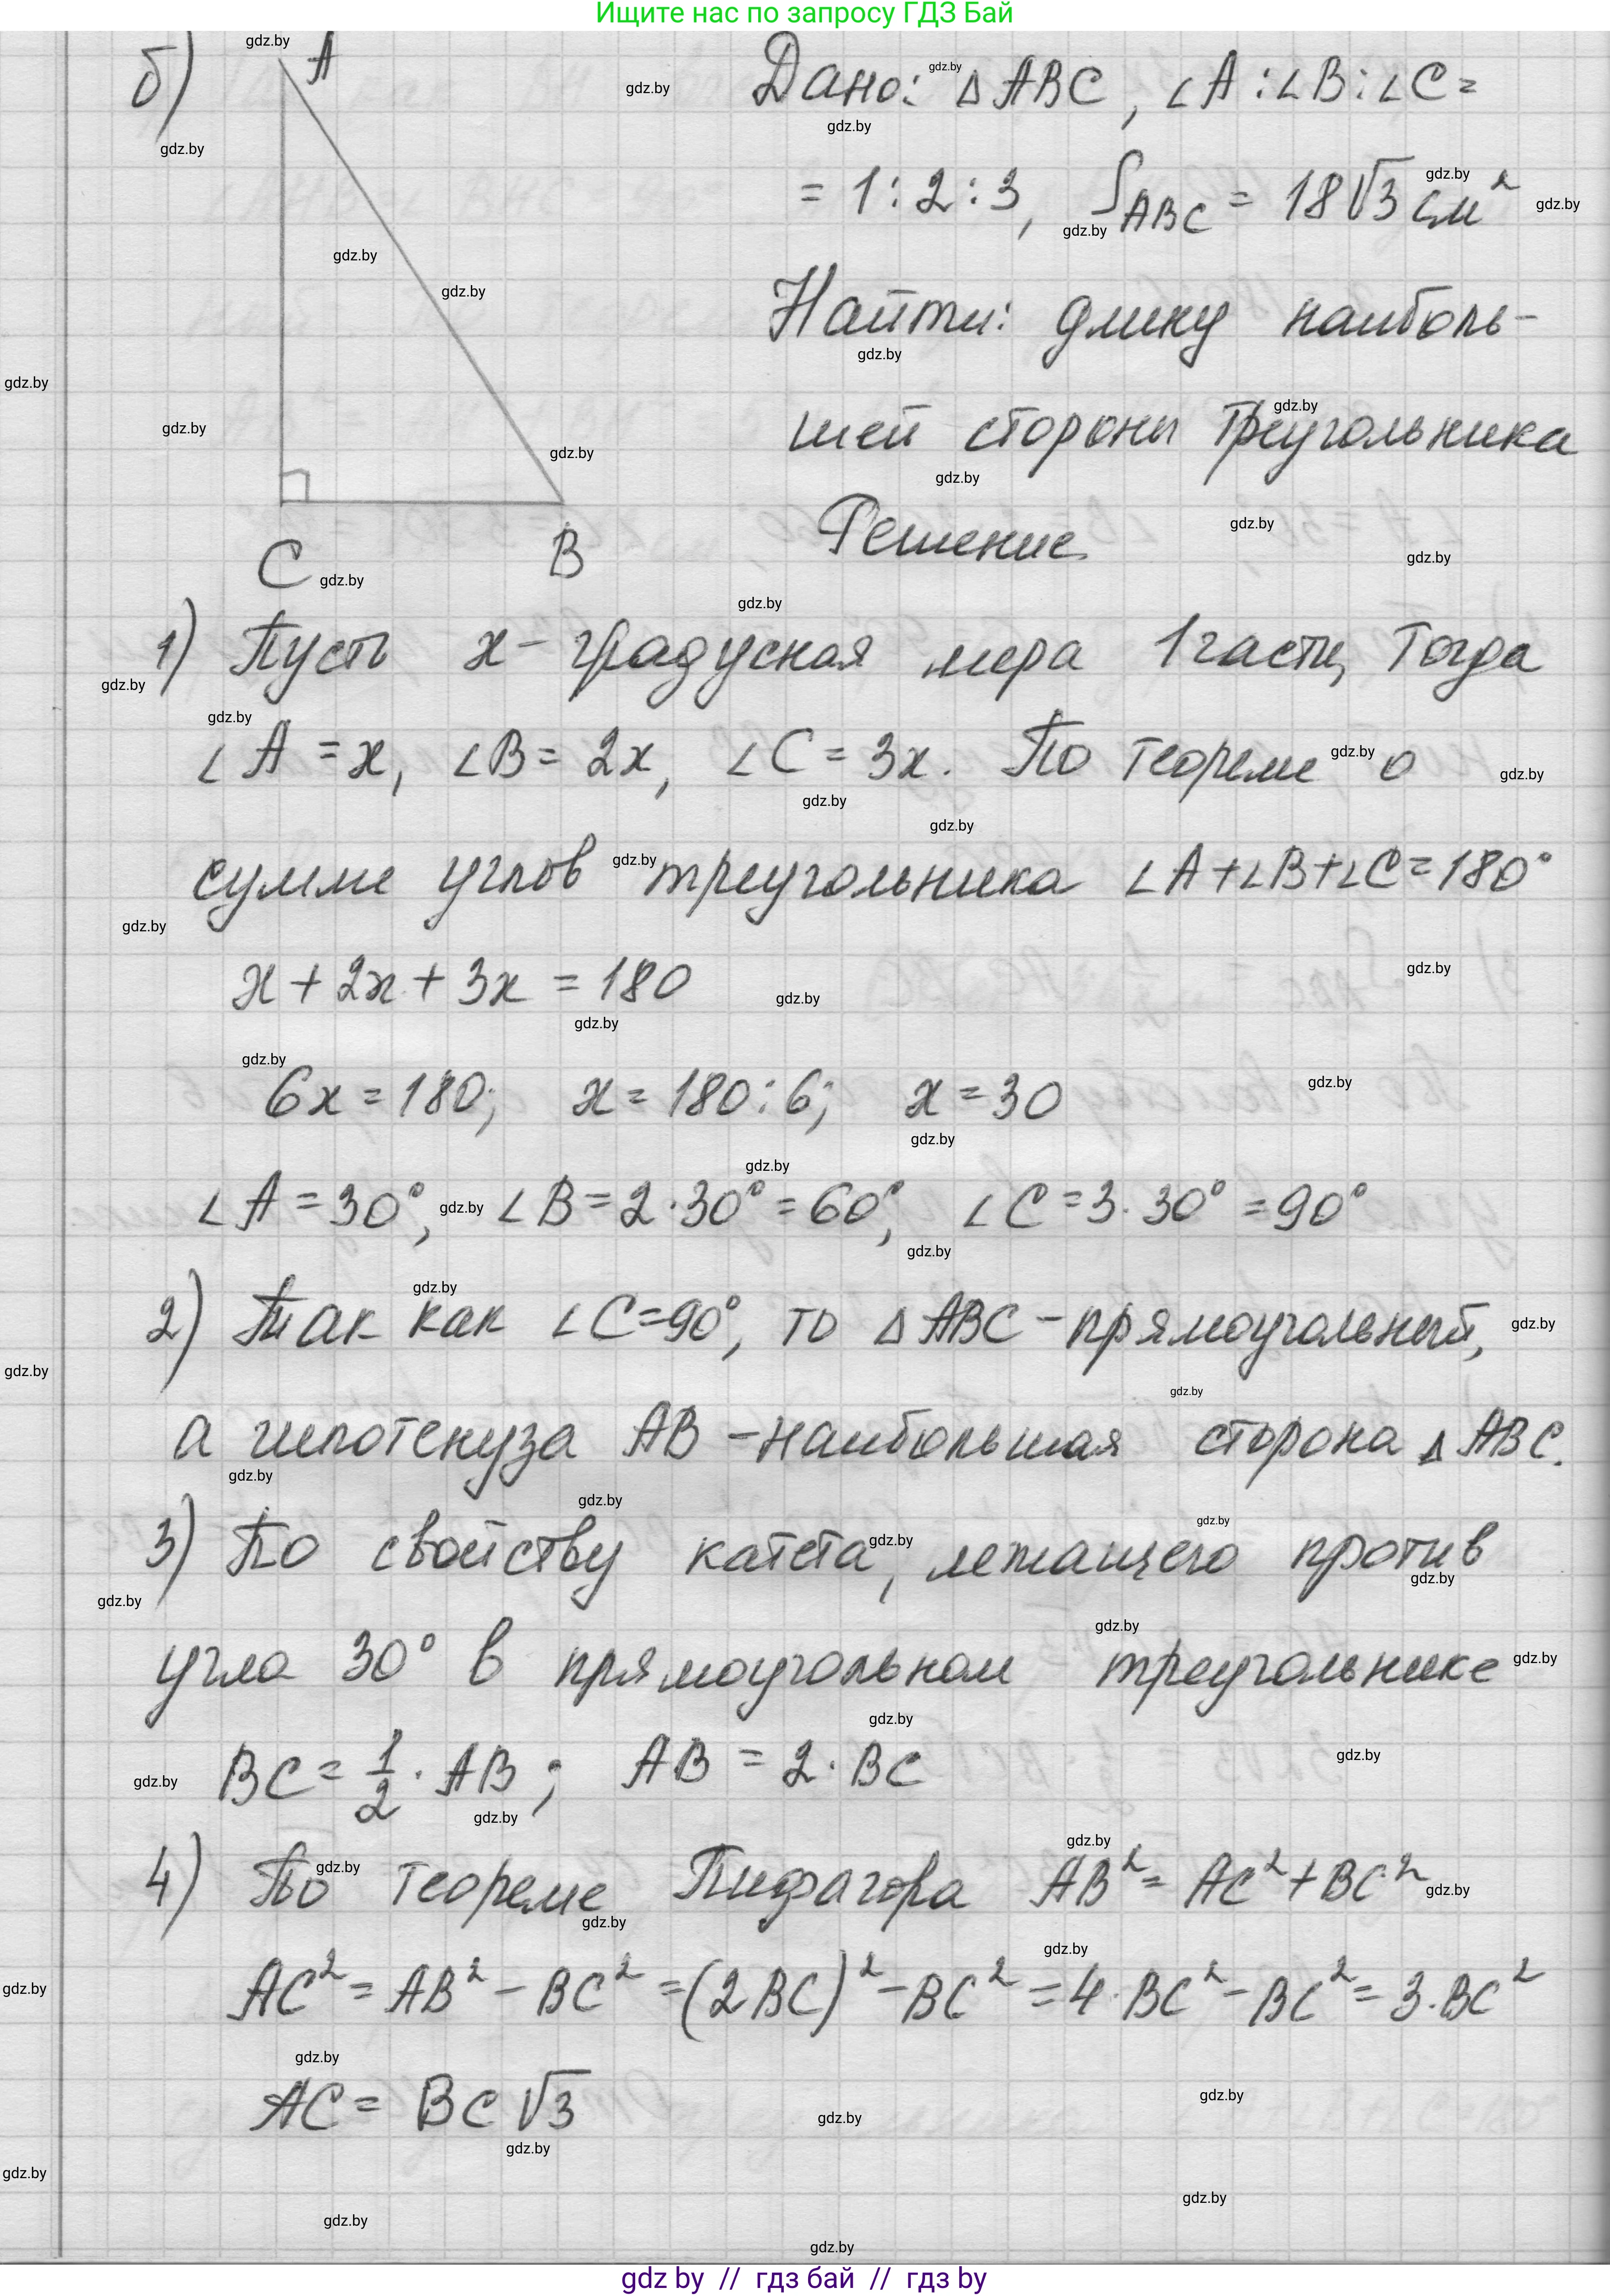 Ищите нас по запросу ГДЗ Бай
б) A
Дано: △ABC, ∠A:∠B:∠C=
= 1:2:3, S_ABC = 18√3 см²
Найти: длину наиболь-
шей стороны треугольника
C B
Решение
1) Пусть x - градусная мера 1 части, Тогда
∠A = x, ∠B = 2x, ∠C = 3x. По теореме о
сумме углов треугольника ∠A+∠B+∠C=180°
x + 2x + 3x = 180
6x = 180; x = 180:6; x = 30
∠A = 30°, ∠B = 2·30° = 60°, ∠C = 3·30° = 90°
2) Так как ∠C=90°, то △ABC - прямоугольный,
а гипотенуза AB - наибольшая сторона △ABC.
3) По свойству катета, лежащего против
угла 30° в прямоугольном треугольнике
BC = 1/2 · AB; AB = 2·BC
4) По теореме Пифагора AB² = AC² + BC²
AC² = AB² - BC² = (2BC)² - BC² = 4·BC² - BC² = 3·BC²
AC = BC √3
gdz by // гдз бай // гдз by